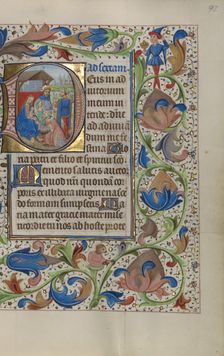 Ad sextam
Deus in ad
iutorium
meum in
tende: dñe
ad adiuuā
dum me fe
stina Glo
ria patri et filio et spiritui sco
Memento salutis auctor
quod nostri quondā cor
poris ex illibata virgine nascē
do formam sumpseris Ma
ria mater gratie mater mise
ricordie tu nos ab hoste prote